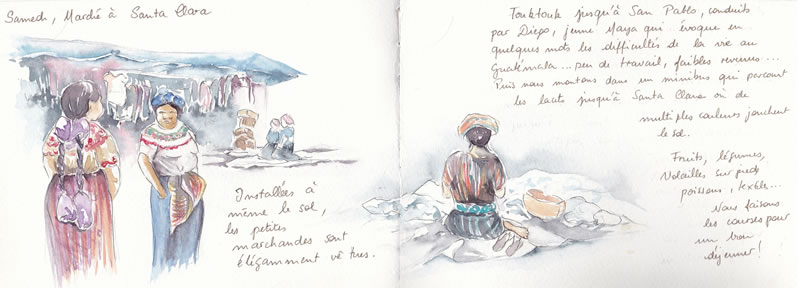 Samedi, Marché à Santa Clara
Installées à
même le sol,
les petites
marchandes sont
élégamment vêtues.
Touktouk jusqu'à San Pablo, conduits
par Diego, jeune Maya qui évoque en
quelques mots les difficultés de la vie au
Guatémala... peu de travail, faibles revenus...
Puis nous montons dans un minibus qui parcourt
les lacets jusqu'à Santa Clara où de
multiples couleurs jonchent
le sol.
Fruits, légumes,
Volailles sur pieds
poissons, textiles...
Nous faisons
les courses pour
un bon
déjeuner!